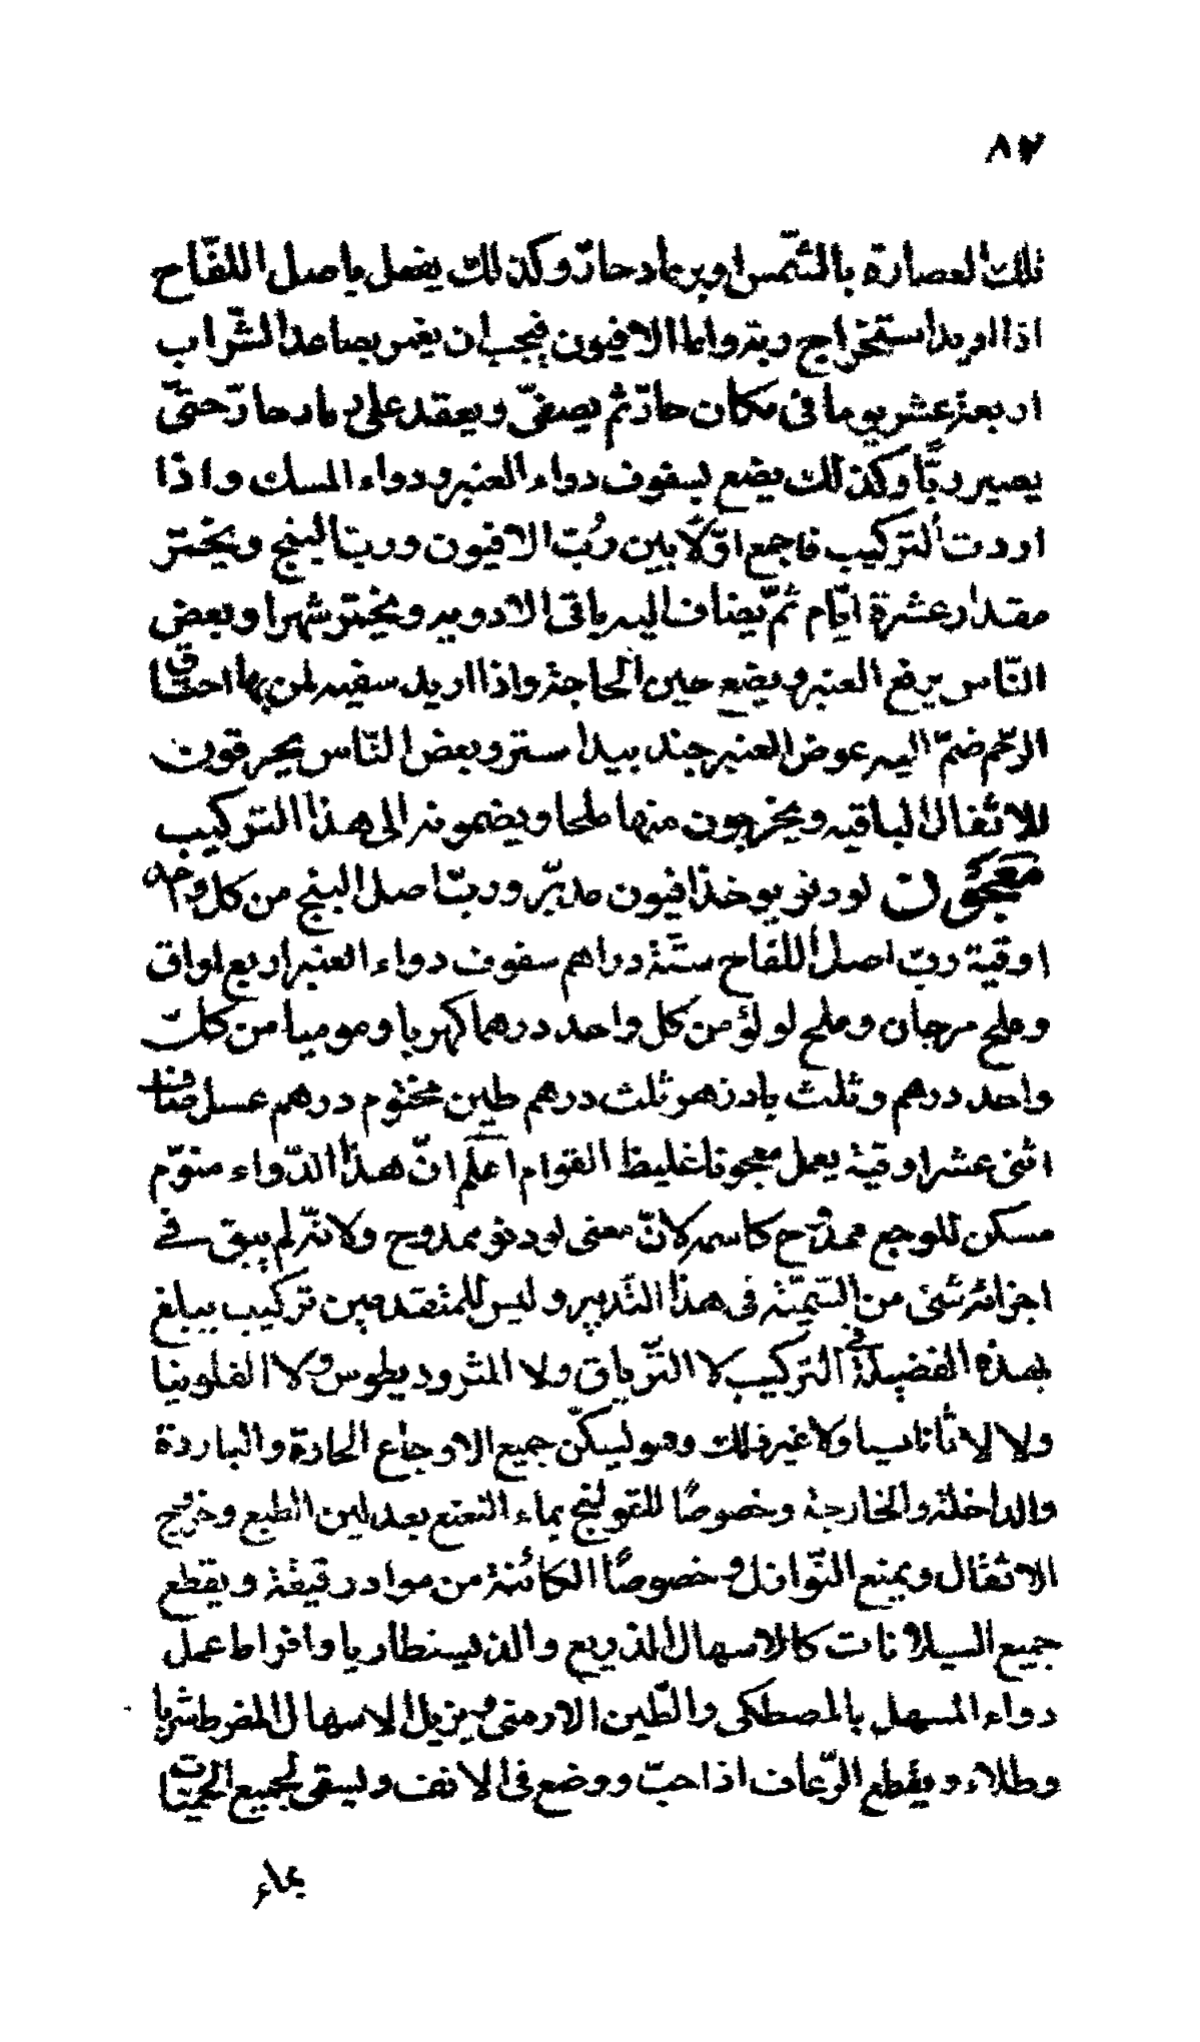 ٨٢
تلك العصارة بالشّمس او برماد حارّ وكذلك يفعل باصل اللفّاح
اذا اريد استخراج ربّه واما الافيون فيجب ان يغمر بصاعد الشّراب
اربعة عشر يوما فى مكان حارّ ثم يصفىّ ويعقد على رماد حارّ حتىّ
يصير ربًّا وكذلك يضع بسفوف دواء العنبر ودواء المسك واذا
اردت التركيب فاجمع اوّلًا بين رُبّ الافيون وربّ البنج ويخمّر
مقدار عشرة ايّام ثمّ يضاف اليه باقى الادويه ويخمّر شهرا وبعض
النّاس يرفع العنبر ويضعه حين الحاجة واذا اريد سقيه لمن بها اختناق
الرّحم ضمّ اليه عوض العنبر جند بيدا ستر وبعض النّاس يحرقون
للاثفال الباقيه ويخرجون منها ملحا ويضمونه الى هذا التركيب
معجون لودنو يوخذ افيون مدبّر وربّ اصل البنج من كل واحد
اوقية ربّ اصل اللفّاح ستّة دراهم سفوف دواء العنبر اربع اواق
وملح مرجان وملح لولؤ من كل واحد درهما كهربا وموميا من كلّ
واحد درهم وثلث بادزهر ثلث درهم طين مختوم درهم عسل صاف
اثنى عشر اوقية يعمل معجونا غليظ القوام اعلم انّ هذا الدّواء منوّم
مسكن للوجع ممدوح كاسمه لانّ معنى لودنو ممدوح ولانّه لم يبق فے
اجزائه شئ من السّميّة فى هذا التّدبير وليس للمتقدمين تركيب يبلغ
بهذه الفضيلة فى التركيب لا التّرياق ولا المثروديطوس ولا الفلونيا
ولا لاثاناسيا ولا غير ذلك وهو ليسكّن جميع الاوجاع الحادة والباردة
والداخلة والخارجة وخصوصًا للقولنج بماء النعنع بعد لين الطبع وخروج
الاثفال ويمنع النّوازل وخصوصًا الكائنة من مواد رقيقة ويقطع
جميع السيلانات كالاسهال الذريع والذيسنطاريا وافراط عمل
دواء المسهل بالمصطكى والطّين الارمنى ويزيل الاسهال المفرط شربا
وطلاء ويقطع الرّعاف اذا حبّ ووضع فى الانف وليسقى لجميع الحميّات
بماء